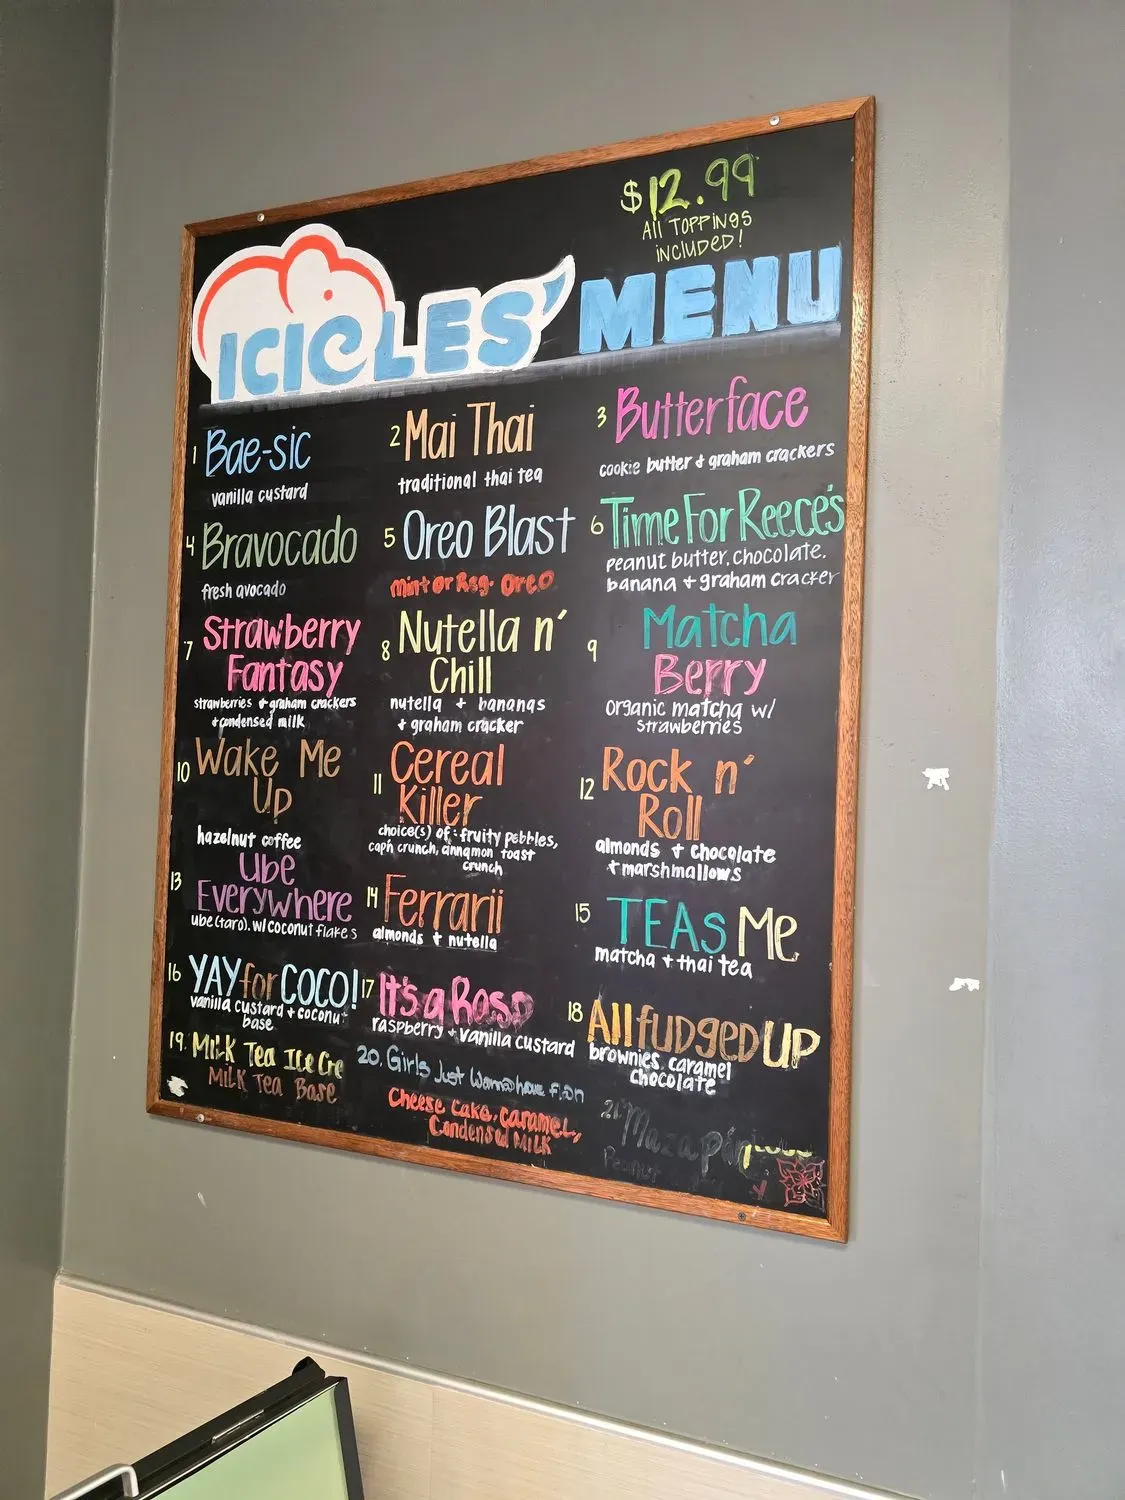 $12.99
All TOPPINGS
INCLUDED!
ICICLES' MENU
1 Bae-sic
vanilla custard
2 Mai Thai
traditional thai tea
3 Butterface
cookie butter & graham crackers
4 Bravocado
fresh avocado
5 Oreo Blast
Mint or Reg. Oreo
6 Time For Reece's
peanut butter, chocolate.
banana + graham cracker
7 Strawberry
Fantasy
strawberries + graham crackers
+ condensed milk
8 Nutella n'
Chill
nutella + bananas
+ graham cracker
9 Matcha
Berry
organic matcha w/
strawberries
10 Wake Me
Up
hazelnut coffee
11 Cereal
Killer
choice(s) of: fruity pebbles,
cap'n crunch, cinnamon toast
crunch
12 Rock n'
Roll
almonds + chocolate
+ marshmallows
13 Ube
Everywhere
ube (taro). w/ coconut flakes
14 Ferrarii
almonds + nutella
15 TEAS Me
matcha + thai tea
16 YAY for COCO!
vanilla custard + coconut
base
17 It's a Rasp
raspberry + vanilla custard
18 All fudged UP
brownies, caramel
chocolate
19. Milk Tea Ice Cre
Milk Tea Base
20. Girls Just Wanna have Fun
Cheese Cake, Caramel,
Condensed Milk
21. Mazapán
Peanut